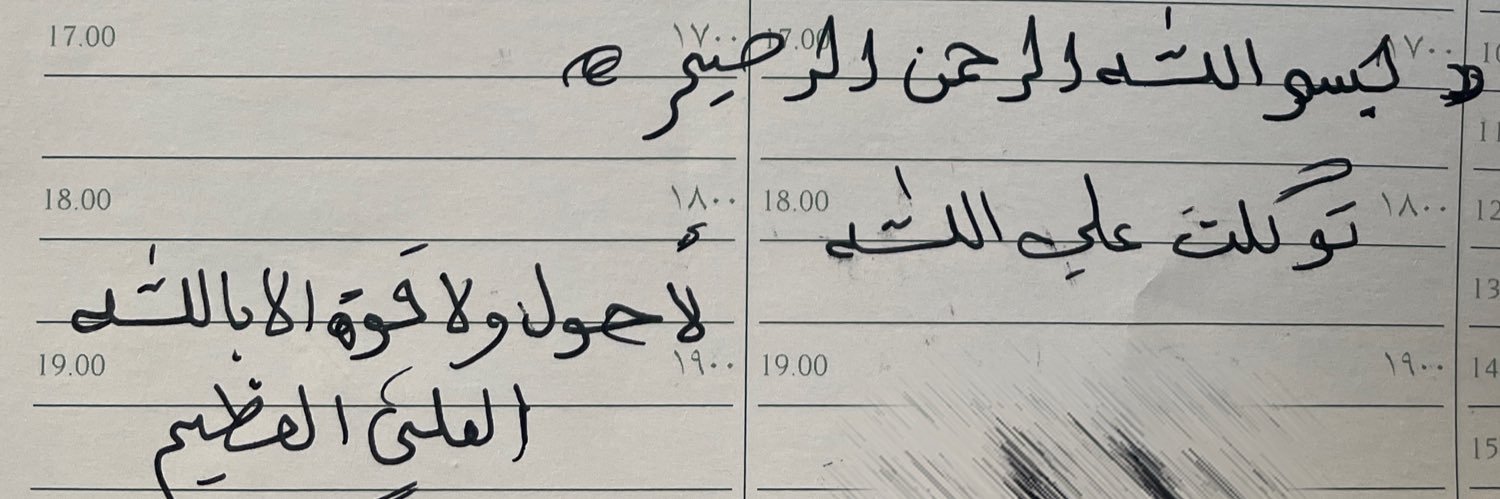 بسم الله الرحمن الرحيم
توكلت على الله
لا حول ولا قوة الا بالله
العلي العظيم
17.00 ١٧٠٠
18.00 ١٨٠٠
19.00 ١٩٠٠
17.00 ١٧٠٠
18.00 ١٨٠٠
19.00 ١٩٠٠
10
11
12
13
14
15